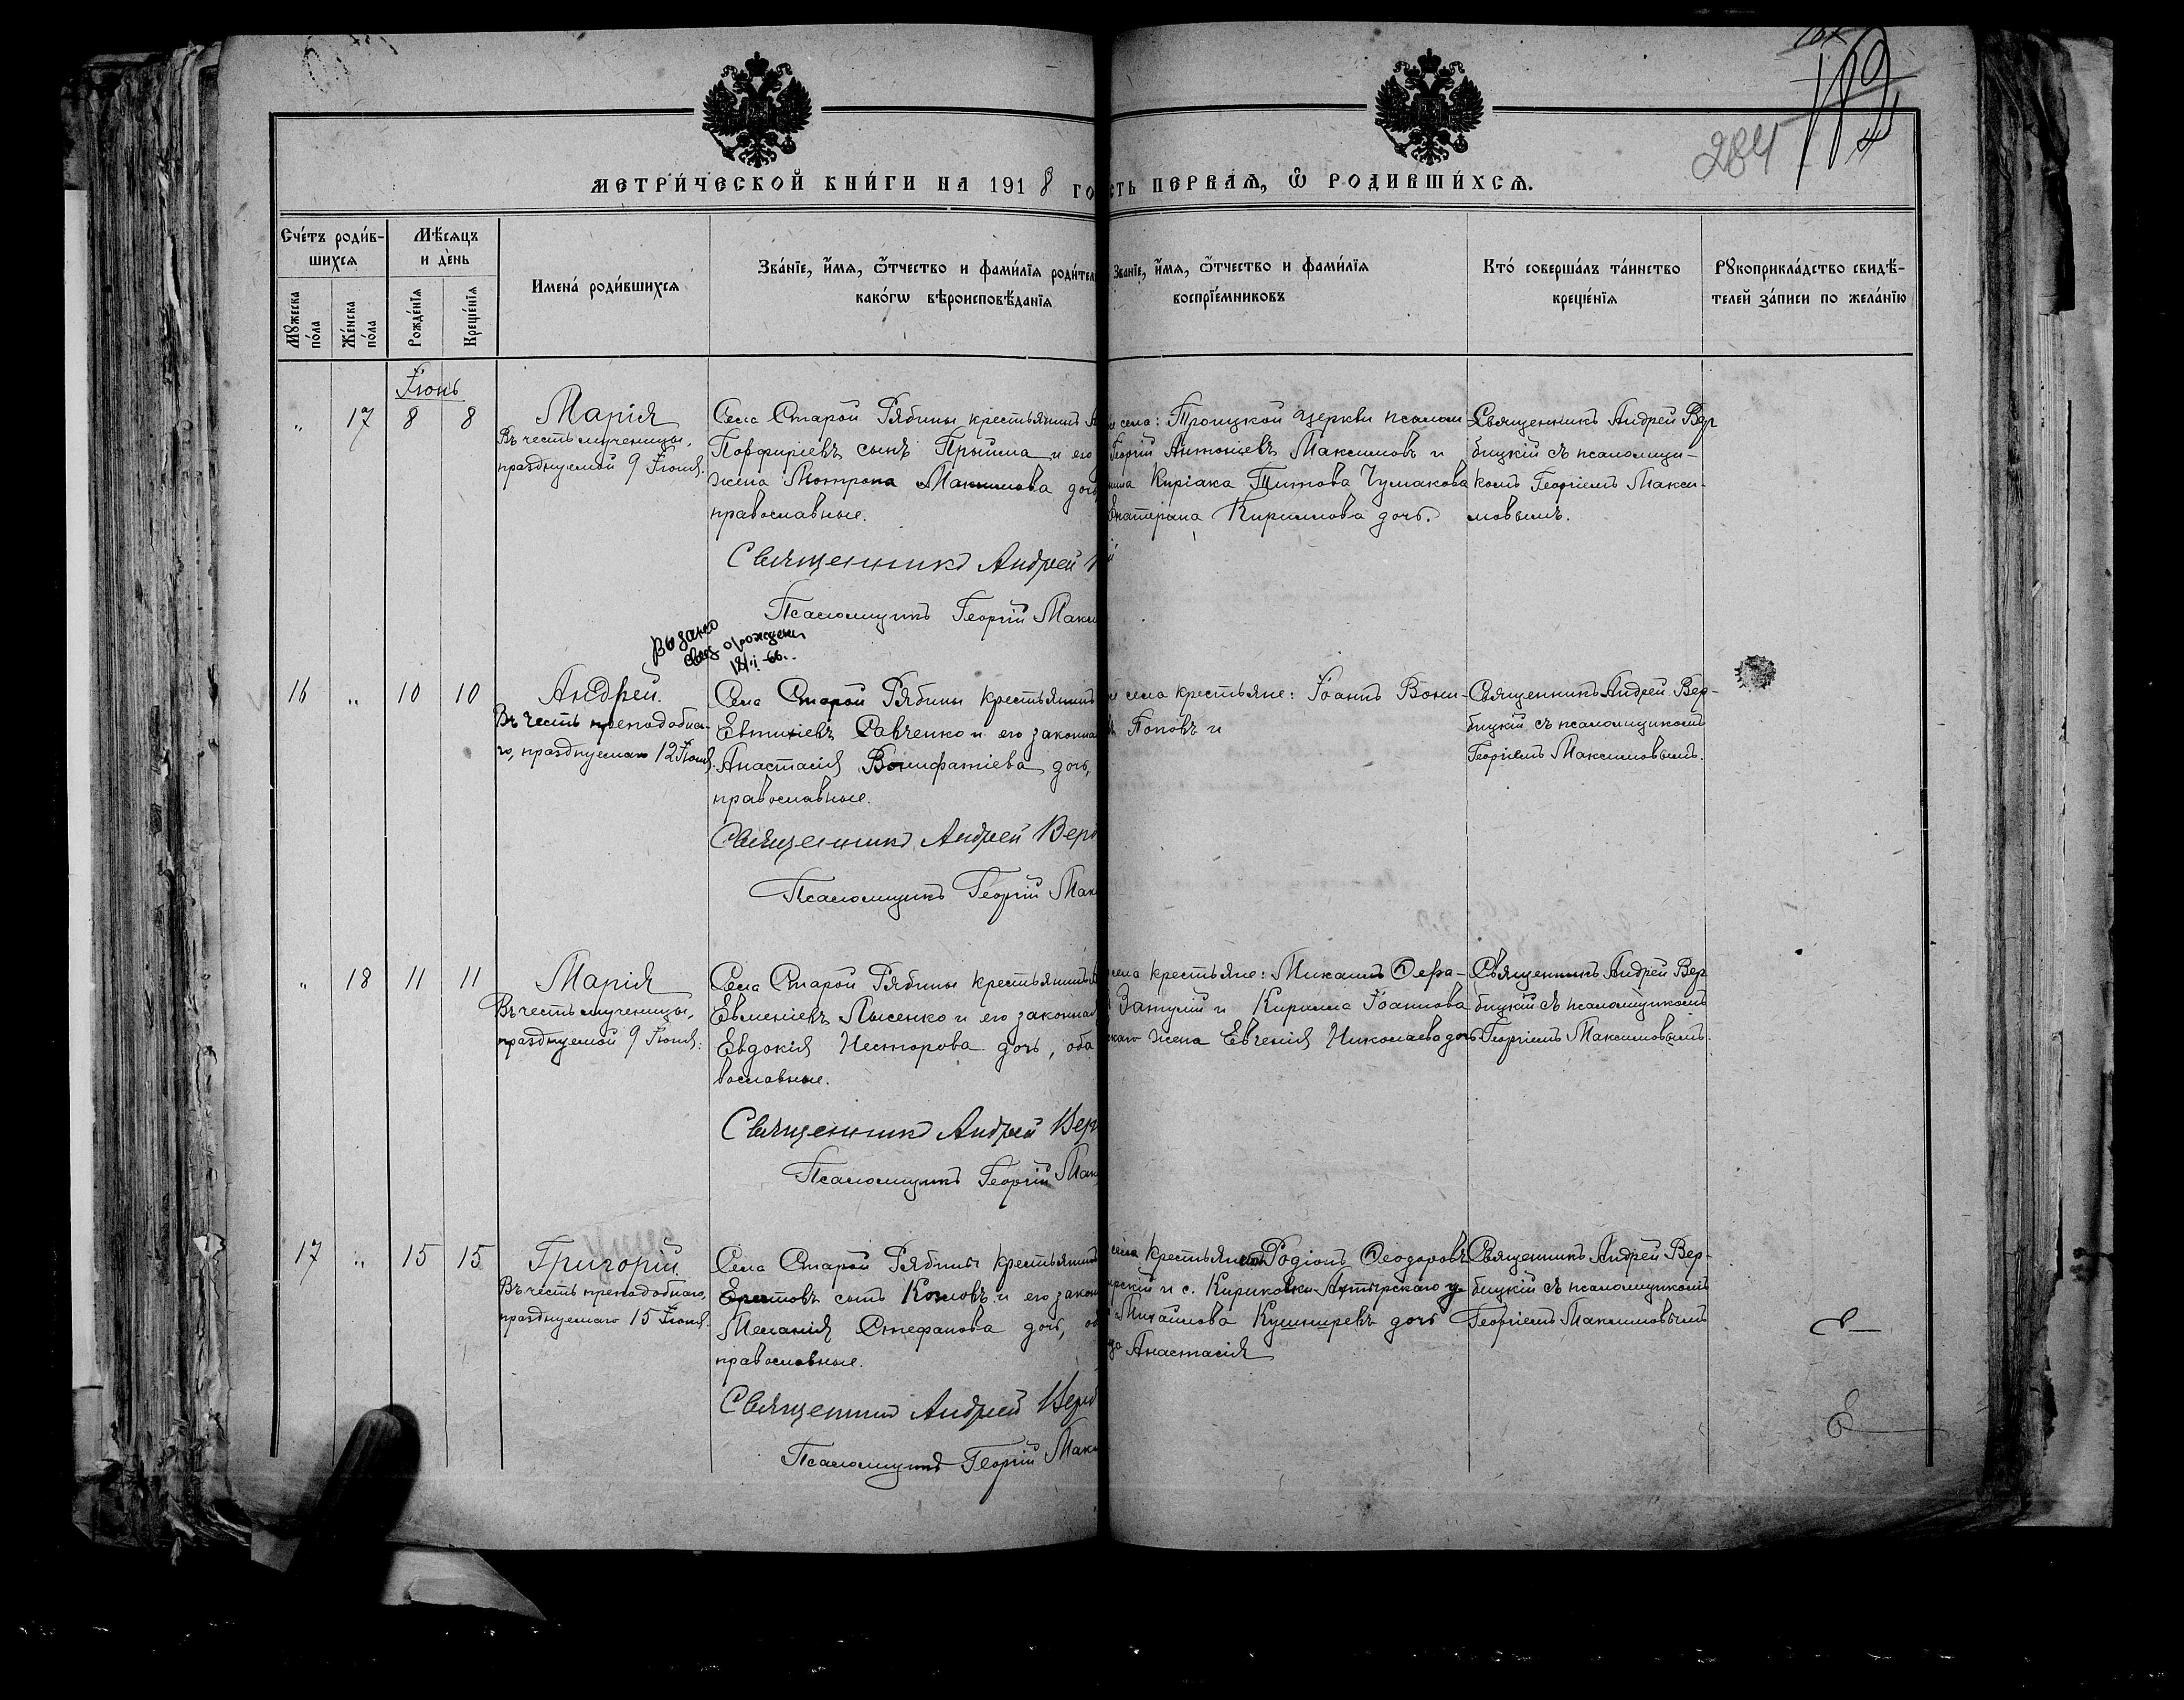 284
МЕТРИ́ЧЕСКОЙ КНИ́ГИ НА 1918 ГО
СТЬ ПЕРВАѦ, Ѽ РОДИВШИ́ХСѦ.
Сче́тъ роди́в-
шихсѧ
Мꙋжеска
по́ла
Же́нска
по́ла
Мѣ́сѧцъ
и де́нь
Рожде́нїѧ
Креще́нїѧ
Имена́ роди́вшихсѧ
Зва́нїе, и́мѧ, ѻ҆́тчество и фами́лїѧ роди́тел
како́гѡ вѣроисповѣ́данїѧ
Зва́нїе, и́мѧ, ѻ҆́тчество и фами́лїѧ
воспрїе́мниковъ
Кто́ соверша́лъ та́инство
креще́нїѧ
Рꙋкоприкла́дство свидѣ́-
телей за́писи по жела́нїю
Іюнь
" 17 8 8
Марія
Въ честь мученицы,
празднуемой 9 Іюня.
Села Старой Рябины крестьянинъ А
Порфиріевъ сынъ Прыйма и его
жена Мотрона Максимова дочь
православные.
Священникъ Андрей В
Псаломщикъ Георгій Макси
и села: Троицкой церкви псалом
Георгій Антоніевъ Максимовъ и
Киріака Титова Чумакова
Екатерина Кириллова дочь.
Священникъ Андрей Вер
бицкій съ псаломщи-
комъ Георгіемъ Макси-
мовымъ.
Выдано
свид о рожден
16 " 10 10
Андрей.
Въ честь преподобна-
го, празднуемаго 12 Іюня.
Села Старой Рябины крестьянинъ
Евтихіевъ Савченко и его законна
Анастасія Вонифатіева дочь,
православные.
Священникъ Андрей Верб
Псаломщикъ Георгій Мак
села крестьяне: Іоаннъ Вони-
Поповъ и
Священникъ Андрей Вер-
бицкій съ псаломщикомъ
Георгіемъ Максимовымъ.
" 18 11 11
Марія
Въ честь мученицы,
празднуемой 9 Іюня.
Села Старой Рябины крестьянинъ
Евменіевъ Лысенко и его законная
Евдокія Несторова дочь, оба
вославные.
Священникъ Андрей Верб
Псаломщикъ Георгій Мак
села крестьяне: Михаилъ Ѳера-
Затулій и Кирилла Іоаннова
скаго жена Евгенія Николаева дочь
Священникъ Андрей Вер
бицкій съ псаломщикомъ
Георгіемъ Максимовымъ.
17 " 15 15
Григорій
Въ честь преподобнаго,
празднуемаго 15 Іюня.
Села Старой Рябины крестьянинъ
сынъ Козловъ и его закон
Меланія Стефанова дочь, об
православные.
Священникъ Андрей Верб
Псаломщикъ Георгій Макс
села крестьянинъ Родіонъ Ѳеодоровъ
рскій и с. Кириковки Ахтырскаго у-
Михаилова Кушниревъ дочь
Анастасія
Священникъ Андрей Вер-
бицкій съ псаломщикомъ
Георгіемъ Максимовымъ